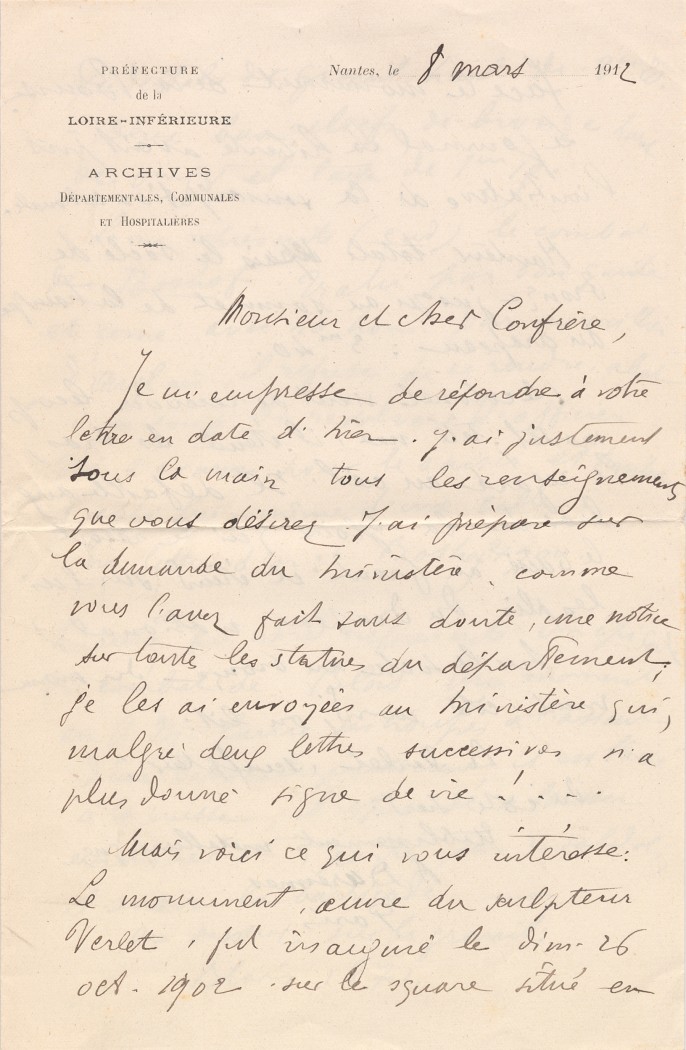 PRÉFECTURE
de la
LOIRE-INFÉRIEURE
ARCHIVES
DÉPARTEMENTALES, COMMUNALES
ET HOSPITALIÈRES
Nantes, le 8 mars 1912
Monsieur et cher Confrère,
Je m'empresse de répondre à votre
lettre en date d'hier. J'ai justement
sous la main tous les renseignements
que vous désirez. J'ai préparé sur
la demande du ministère, comme
vous l'avez fait sans doute, une notice
sur toutes les statues du département;
je les ai envoyées au ministère qui,
malgré deux lettres successives n'a
plus donné signe de vie !...
Mais voici ce qui vous intéresse:
Le monument, œuvre du sculpteur
Verlet, fut inauguré le dim. 26
oct. 1902 sur le square situé en